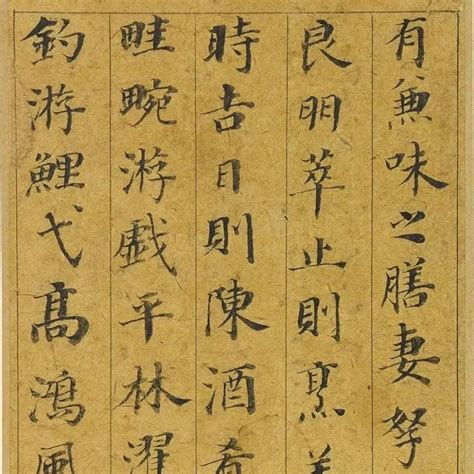 有兼味之膳妻孥
良朋萃止則烹羔
時吉日則陳酒肴
畦畹游戲平林濯
釣游鯉弋髙鴻風